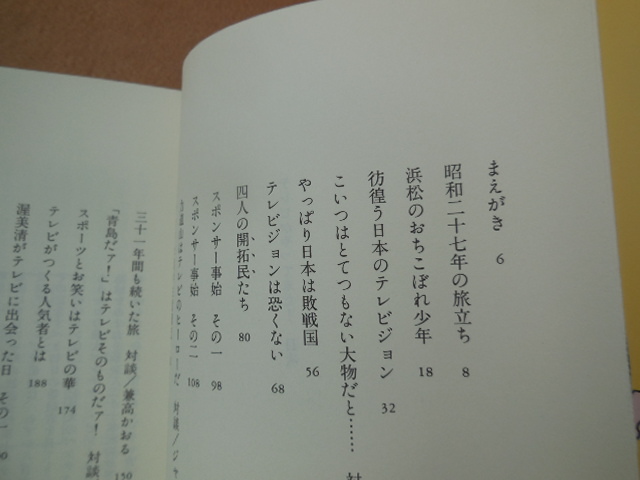 まえがき 6
昭和二十七年の旅立ち 8
浜松のおちこぼれ少年 18
彷徨う日本のテレビジョン 32
こいつはとてつもない大物だと…… 対
やっぱり日本は敗戦国 56
テレビジョンは恐くない 68
四人の開拓民たち 80
スポンサー事始 その一 98
スポンサー事始 その二 108
三十一年間も続いた旅 対談／兼高かおる 150
「青島だァ！」はテレビそのものだァ！ 対談
スポーツとお笑いはテレビの華 174
テレビがつくる人気者とは 188
渥美清がテレビに出会った日 その一